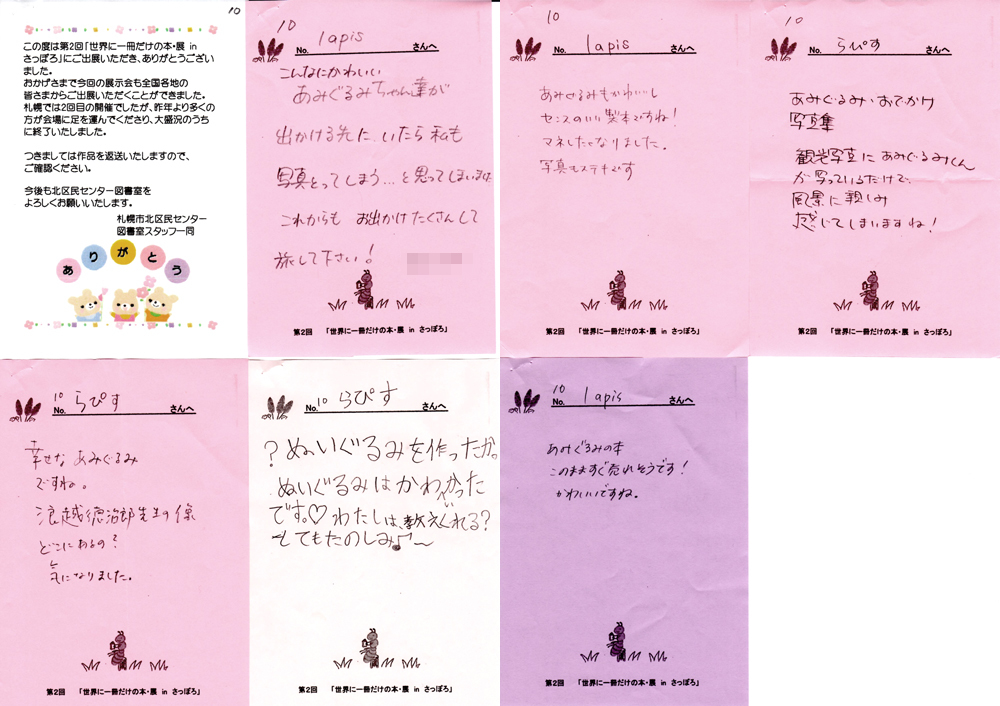 10
この度は第2回「世界に一冊だけの本・展 in
さっぽろ」にご出展いただき、ありがとうござい
ました。
おかげさまで今回の展示会も全国各地の
皆さまからご出展いただくことができました。
札幌では2回目の開催でしたが、昨年より多くの
方が会場に足を運んでくださり、大盛況のうち
に終了いたしました。
つきましては作品を返送いたしますので、
ご確認ください。
今後も北区民センター図書室を
よろしくお願いいたします。
札幌市北区民センター
図書室スタッフ一同
ありがとう
10
No. lapis さんへ
こんなにかわいい
あみぐるみちゃん達が
出かける先に いたら 私も
写真とってしまう…と思ってしまいます
これからも お出かけたくさんして
旅して下さい!
第2回 「世界に一冊だけの本・展 in さっぽろ」
10
No. lapis さんへ
あみぐるみもかわいいし
センスのいい製本ですね!
マネしたくなりました。
写真もステキです
第2回 「世界に一冊だけの本・展 in さっぽろ」
10
No. らぴす さんへ
あみぐるみ・おでかけ
写真集
観光写真にあみぐるみくん
が写っているだけで、
風景に親しみ
感じてしまいますね!
第2回 「世界に一冊だけの本・展 in さっぽろ」
No. 10 らぴす さんへ
幸せな あみぐるみ
ですね。
浪越徳治郎先生の像
どこにあるの?
気になりました。
第2回 「世界に一冊だけの本・展 in さっぽろ」
No. 10 らぴす さんへ
?ぬいぐるみを作ったか。
ぬいぐるみはかわいかった
です。♡わたしは、教えくれる?
とてもたのしみ♪〜
第2回 「世界に一冊だけの本・展 in さっぽろ」
10
No. lapis さんへ
あみぐるみの本
このまますぐ売れそうです!
かわいいですね。
第2回 「世界に一冊だけの本・展 in さっぽろ」